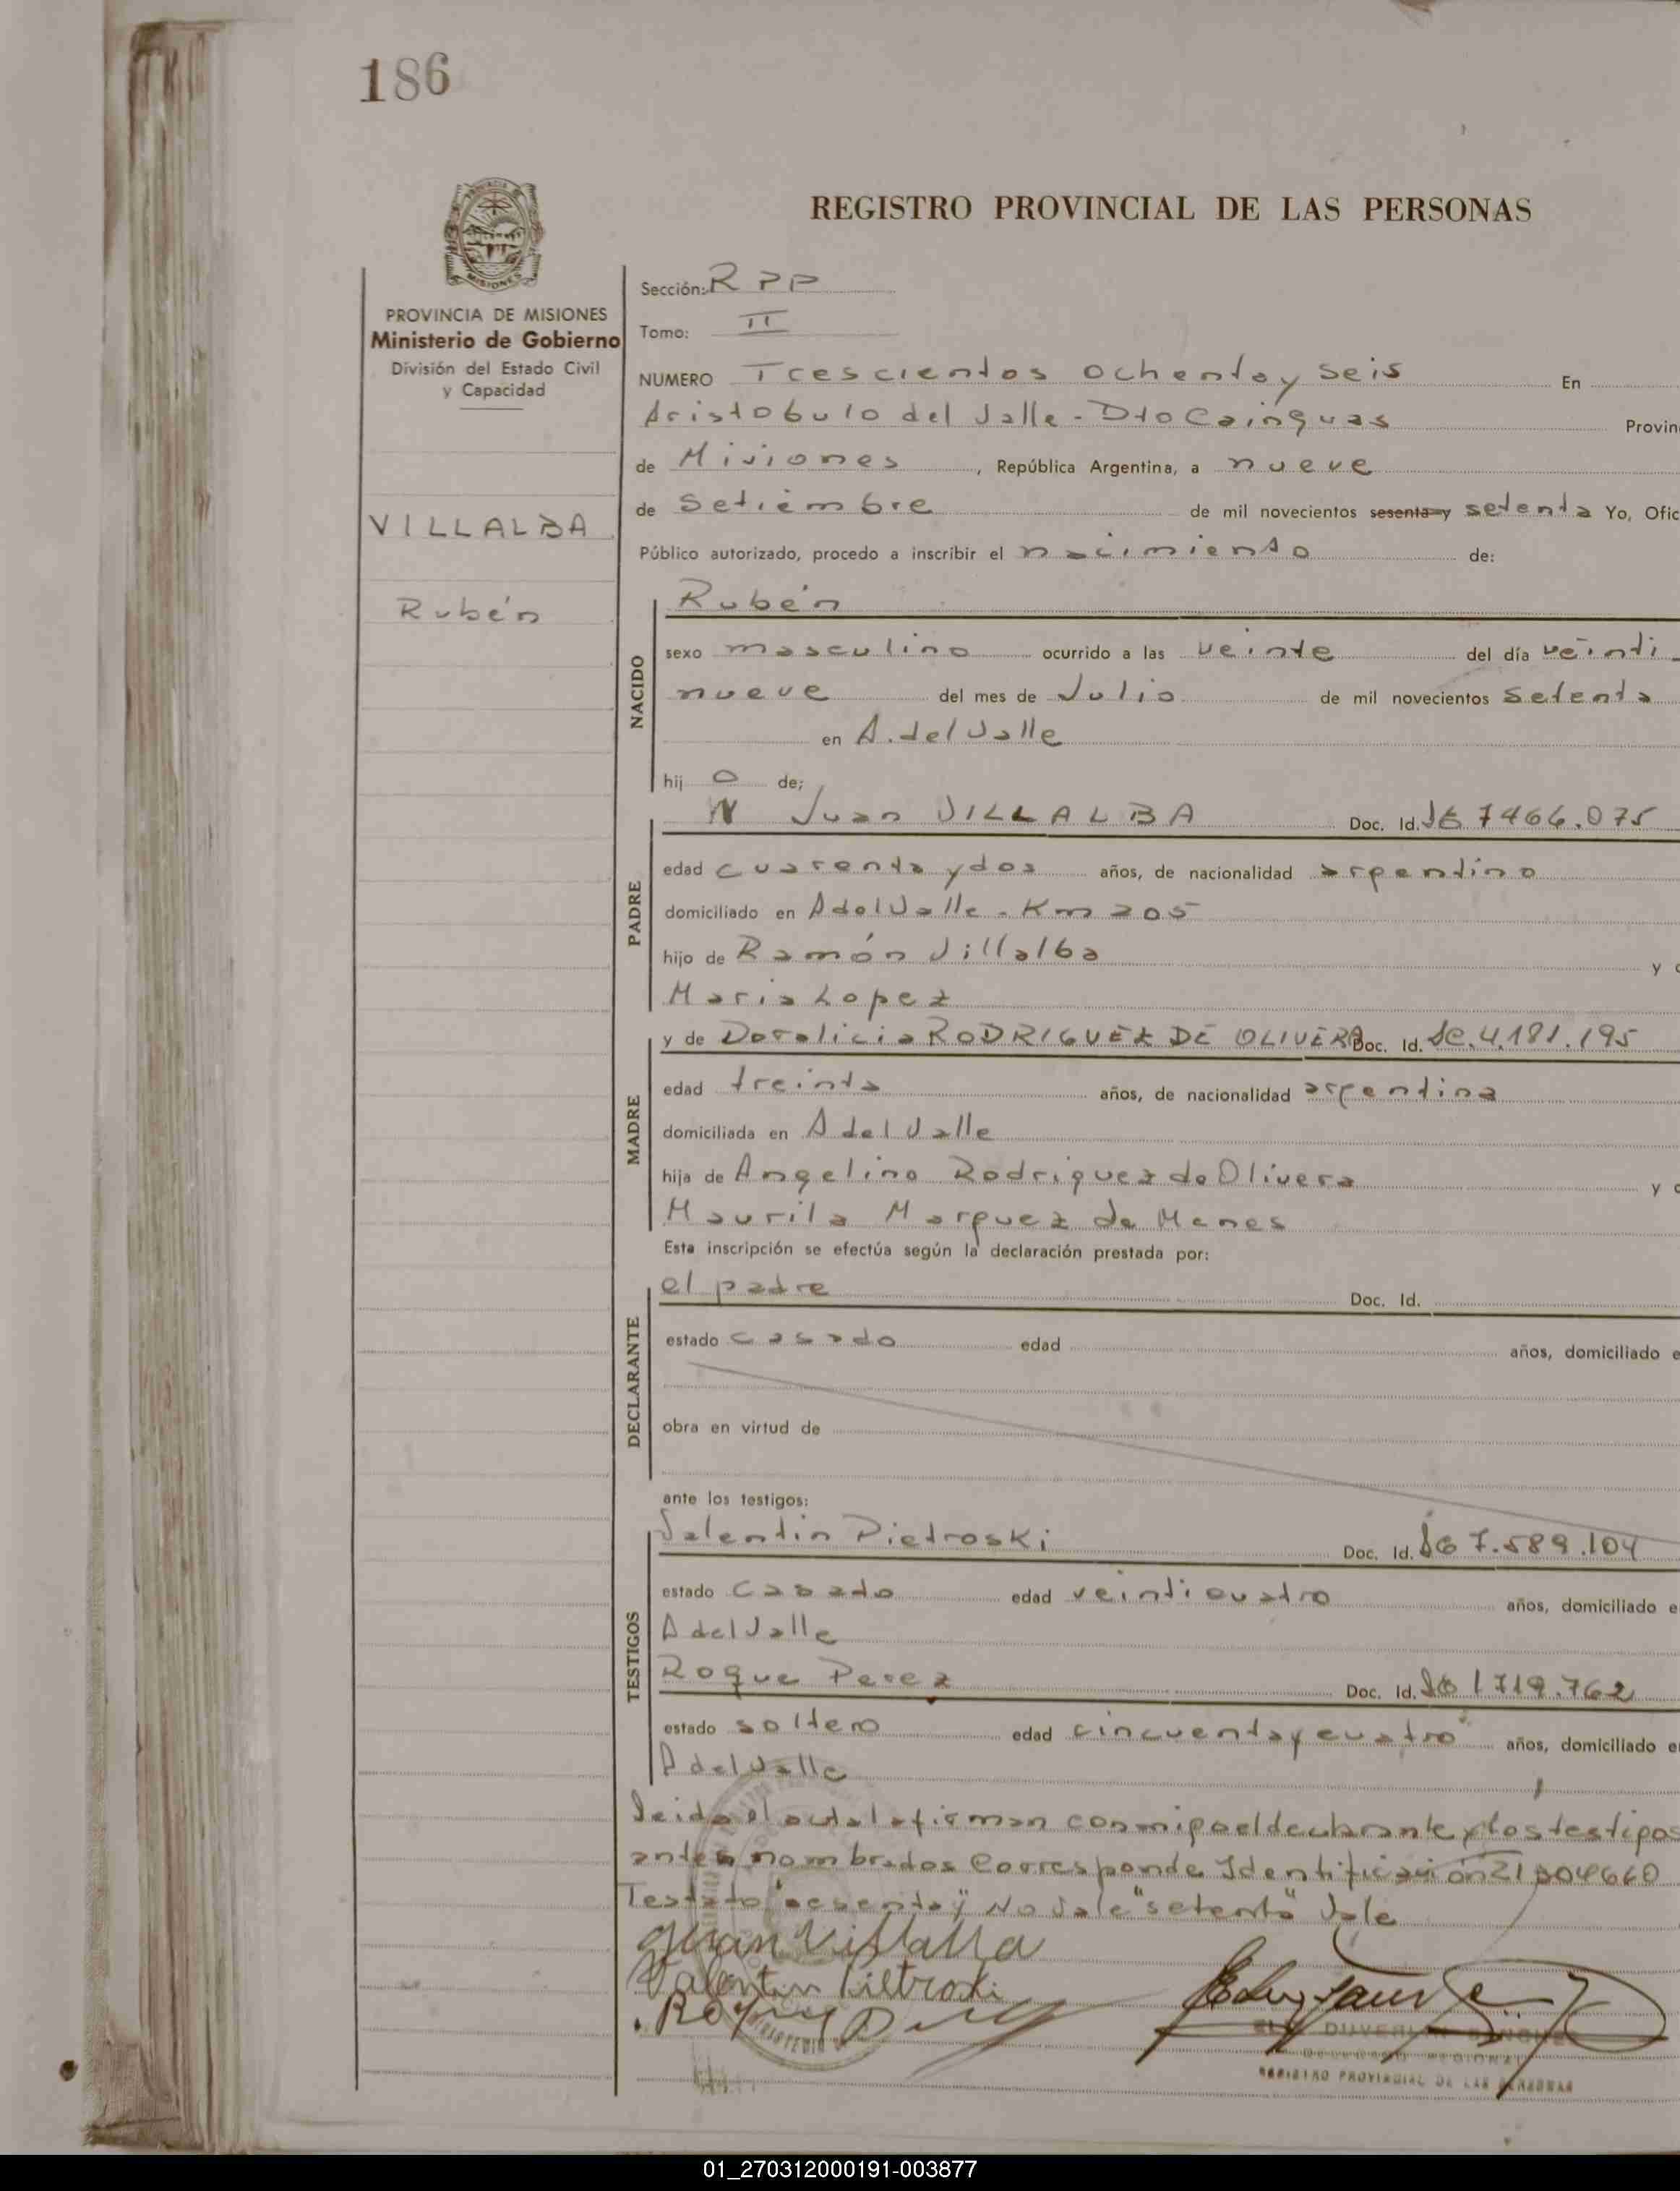 186
REGISTRO PROVINCIAL DE LAS PERSONAS
PROVINCIA DE MISIONES
Ministerio de Gobierno
División del Estado Civil
y Capacidad
VILLALBA
Rubén
Sección: R PP
Tomo: II
NUMERO Trescientos ochenta y seis En
Aristobulo del Valle - Dto Cainguas Provin
de Misiones, República Argentina, a nueve
de setiembre de mil novecientos sesenta y setenta Yo, Ofic
Público autorizado, procedo a inscribir el nacimiento de:
NACIDO
Rubén
sexo masculino ocurrido a las veinte del día veinti
nueve del mes de Julio de mil novecientos setenta
en A. del Valle
hij o de;
PADRE
Juan VILLALBA Doc. Id. 7466.075
edad cuarenta y dos años, de nacionalidad argentino
domiciliado en A del Valle - Km 205
hijo de Ramón Villalba y
Maria Lopez
MADRE
y de Doralicia RODRIGUEZ DE OLIVERA Doc. Id. 4.181.195
edad treinta años, de nacionalidad argentina
domiciliada en A del Valle
hija de Angelino Rodriguez de Olivera y
Maurila Marquez de Menes
Esta inscripción se efectúa según la declaración prestada por:
DECLARANTE
el padre Doc. Id.
estado casado edad años, domiciliado e
obra en virtud de
ante los testigos:
TESTIGOS
Valentin Pietroski Doc. Id. 7.589.104
estado casado edad veinticuatro años, domiciliado e
A del Valle
Roque Perez Doc. Id. 1719.762
estado soltero edad cincuenta y cuatro años, domiciliado e
A del Valle
Leida el acta la firman conmigo el declarante y los testigos
antes nombrados Corresponde Identificación 21304660
Testado "sesenta y" No Vale "setenta" Vale
Juan Villalba
Valentin Pietroski
Roque
REGISTRO PROVINCIAL DE LAS PERSONAS
01_270312000191-003877